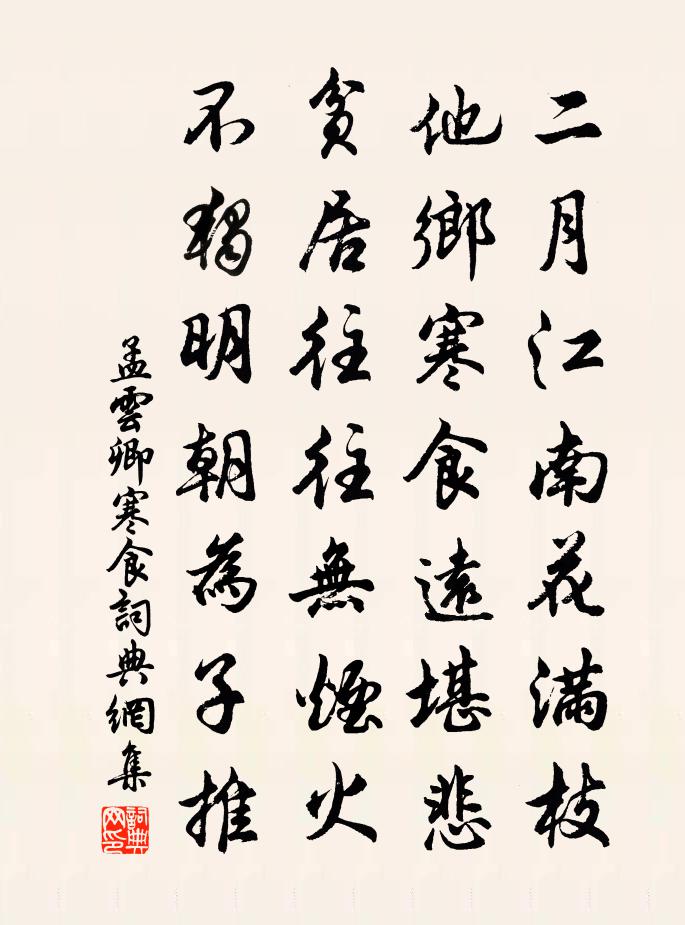 二月江南花滿枝
他鄉寒食遠堪悲
貧居往往無煙火
不獨明朝為子推
孟雲卿寒食詞典網集
詞典網印